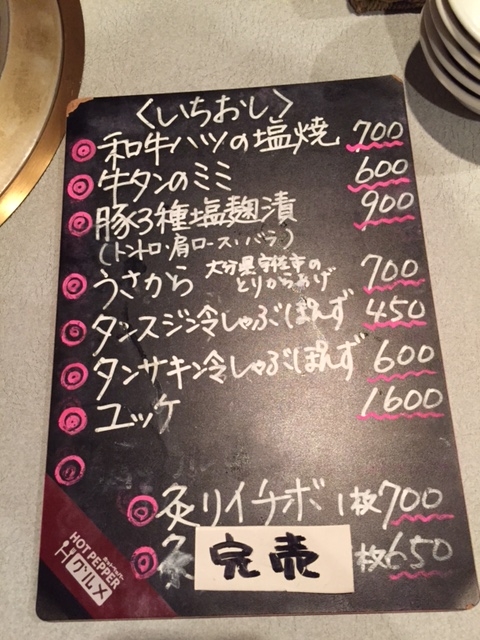 〈いちおし〉
和牛ハツの塩焼 700
牛タンのミミ 600
豚3種塩麹漬 900
(トントロ・肩ロース・バラ)
うさから 大分県宇佐市のとりからあげ 700
タンスジ冷しゃぶぽんず 450
タンサキン冷しゃぶぽんず 600
ユッケ 1600
炙リイチボ 1枚700
炙 完売 枚650
HOT PEPPER
グルメ